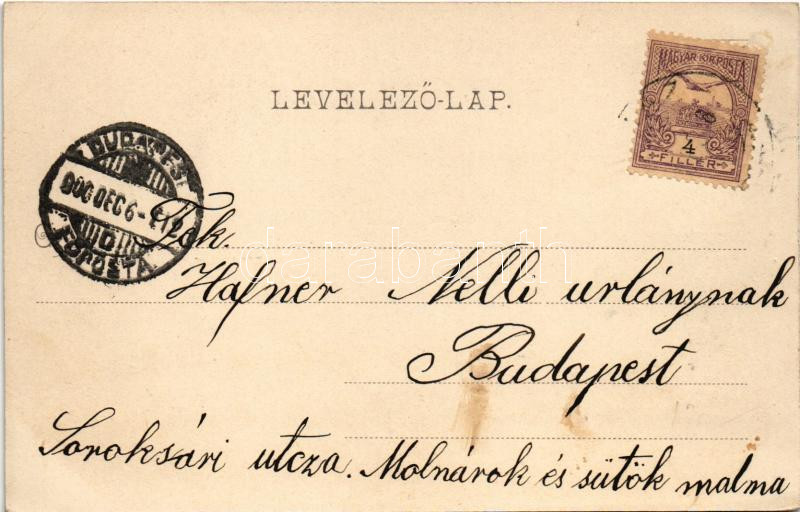 LEVELEZŐ-LAP.
MAGYAR KIR. POSTA
4
FILLÉR
BUDAPEST
900 DEC 6
FŐPOSTA
Tek.
Hafner Nelli urlánynak
Budapest
Soroksári utcza. Molnárok és sütök malma
darabanth